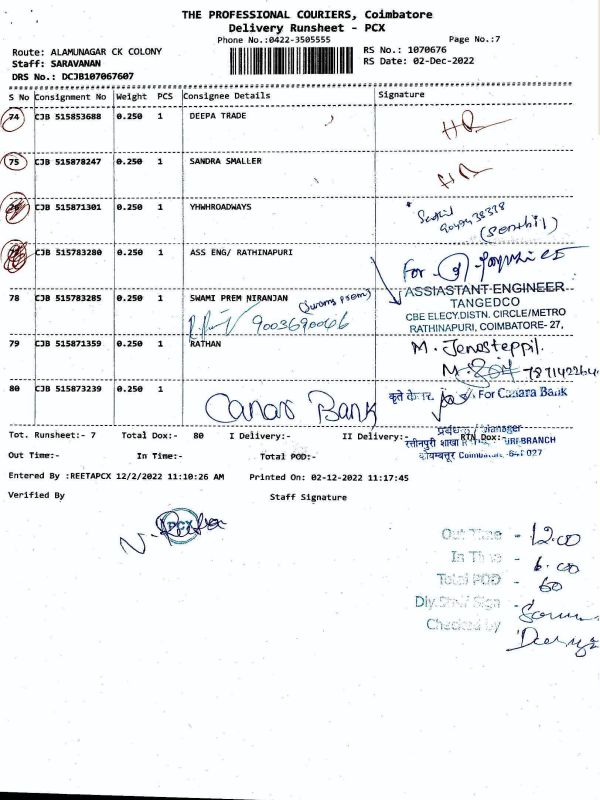 THE PROFESSIONAL COURIERS, Coimbatore
Delivery Runsheet - PCX
Phone No.:0422-3505555
Page No.:7
Route: ALAMUNAGAR CK COLONY
RS No.: 1070676
Staff: SARAVANAN
RS Date: 02-Dec-2022
DRS No.: DCJB107067607
S No Consignment No Weight PCS Consignee Details Signature
74 CJB 515853688 0.250 1 DEEPA TRADE
75 CJB 515878247 0.250 1 SANDRA SMALLER
CJB 515871301 0.250 1 YHWHROADWAYS
(Senthil)
CJB 515783280 0.250 1 ASS ENG/ RATHINAPURI
For
78 CJB 515783285 0.250 1 SWAMI PREM NIRANJAN
ASSIASTANT ENGINEER
TANGEDCO
CBE ELECY.DISTN. CIRCLE/METRO
RATHINAPURI, COIMBATORE- 27,
9003690066
79 CJB 515871359 0.250 1 RATHAN
M. Jenosteppil.
80 CJB 515873239 0.250 1
Canara Bank
कृते केनरा For Canara Bank
प्रबंधक / Manager
Tot. Runsheet:- 7 Total Dox:- 80 I Delivery:- II Delivery:- RTN Dox:-
रत्तीनपुरी शाखा BRANCH
कोयम्बत्तूर 641 027
Out Time:- In Time:- Total POD:-
Entered By :REETAPCX 12/2/2022 11:10:26 AM Printed On: 02-12-2022 11:17:45
Verified By Staff Signature
PCX
Out Time - 12.00
In Time - 6.00
Total POD - 60
Dly.Staff Sign -
Checked by